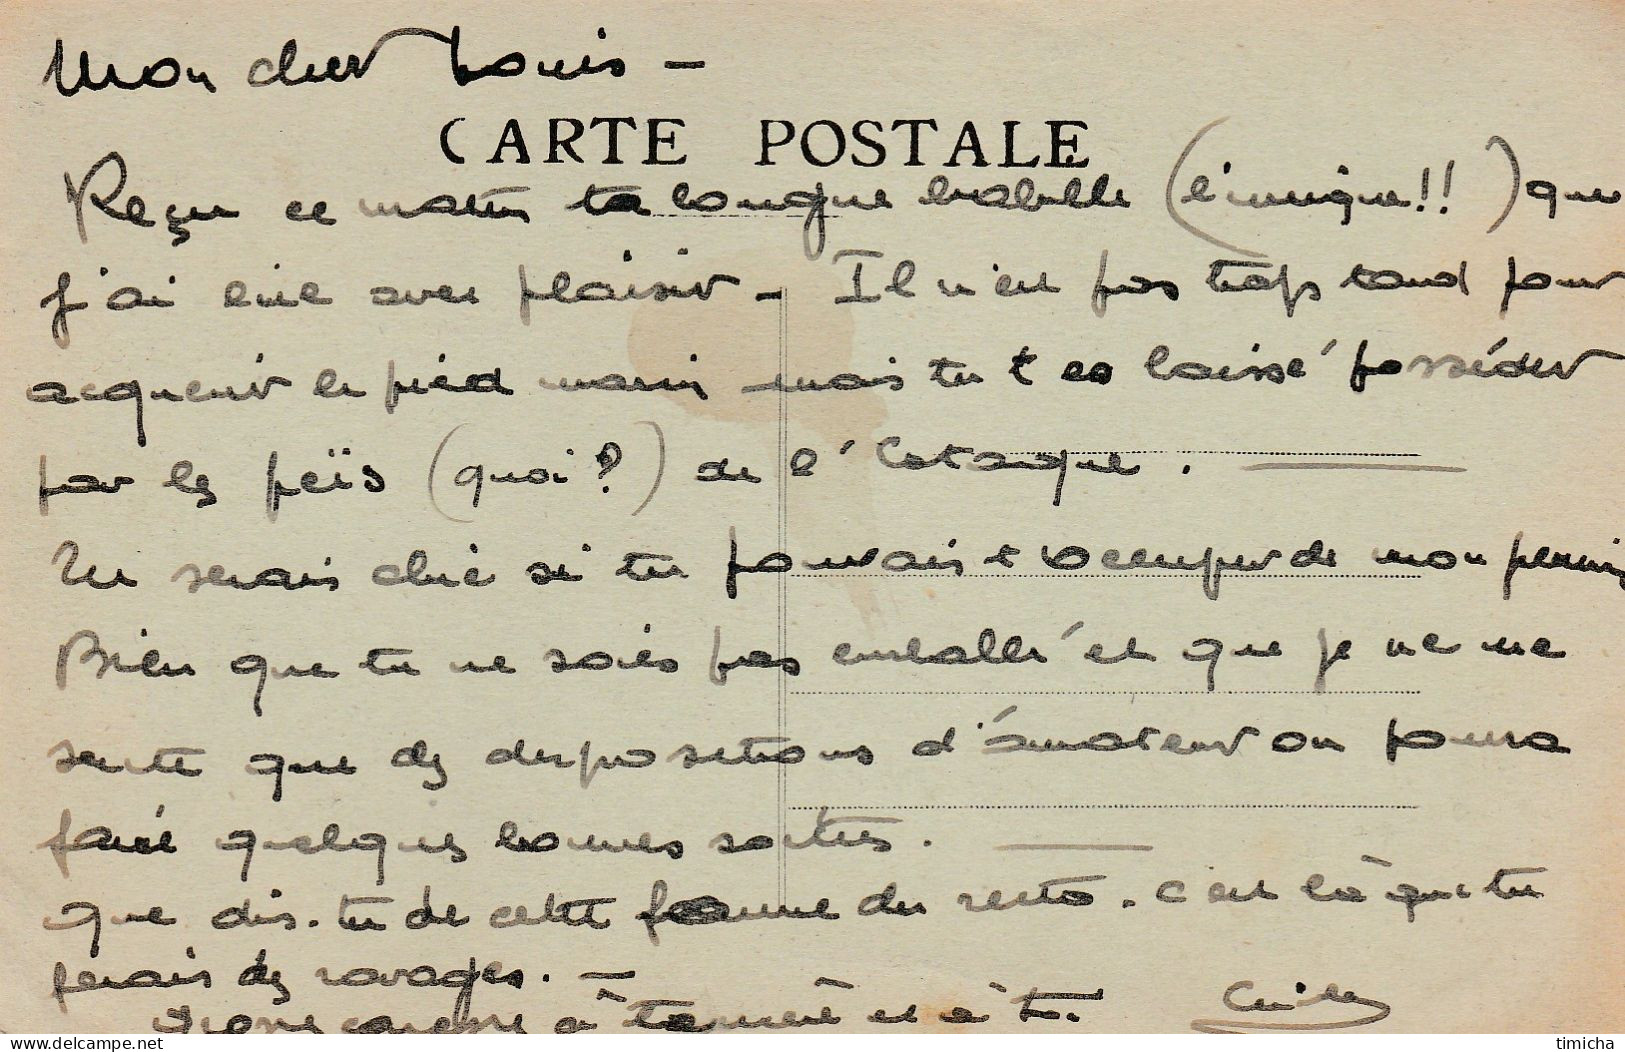 Mon cher Louis -
CARTE POSTALE
Reçu ce matin ta longue babille (l'unique!!) que
j'ai lue avec plaisir - Il n'est pas trop tard pour
acquerir le pied marin mais tu t es laissé posséder
par les peïs (quoi?) de l'
Tu serais chic si tu pouvais t occuper de mon permis
Bien que tu ne sois pas emballé et que je ne me
sente que des dispositions d'amateur on pourra
faire quelques bonnes sorties.
que dis-tu de cette femme du resto. c'est là que tu
ferais des ravages. -
Grosse caresse à ta mère et à t.
timicha